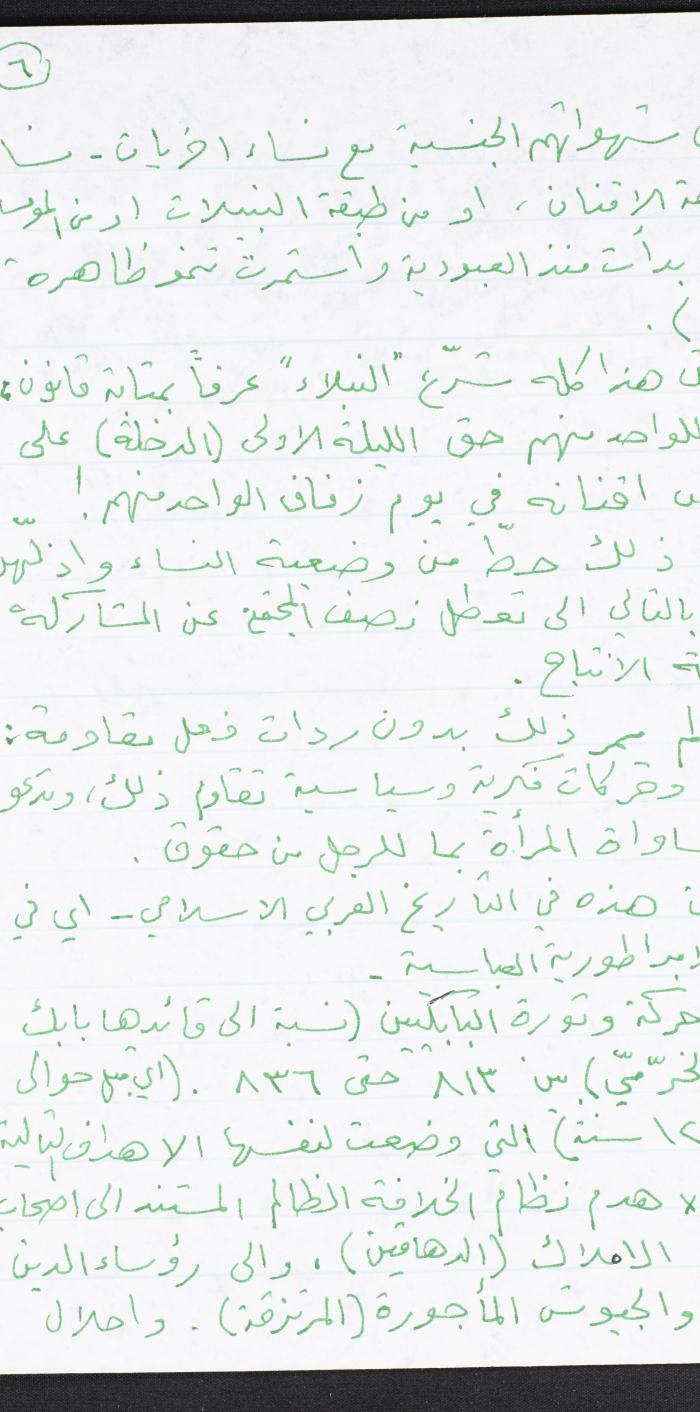 ٦
شهواتهم الجنسية مع نساء اخريات -
الاقنان ، او من طبقة النبيلات او من
بدأت منذ العبودية وأستمرت تنمو ظاهره
) .
هذا كله شرّع "النبلاء" عرفاً بمثابة قانون :
للواحد منهم حق الليلة الاولى (الدخلة) على
اقنانه في يوم زفاف الواحد منهم !
ذلك حطّ من وضعية النساء واذلّهن
بالتالي الى تعطل نصف المجتمع عن المشاركة
الأنتاج .
يمر ذلك بدون ردات فعل مقاومة :
وحركات فكرية وسياسية تقاوم ذلك ، وتدعو
المرأة بما للرجل من حقوق .
هذه في التأريخ العربي الاسلامي - اي في
العباسية -
حركة وثورة البابكيين (نسبة الى قائدها بابك
الخرّميّ) من ٨١٣ حتى ٨٣٦ . (اي قبل حوالى
سنة) التي وضعت لنفسها الاهداف التالية
x هدم نظام الخلافة الظالم المستند الى اصحاب
الاملاك (الدهاقين) ، والى رؤساء الدين
والجيوش المأجورة (المرتزقة) . واحلال